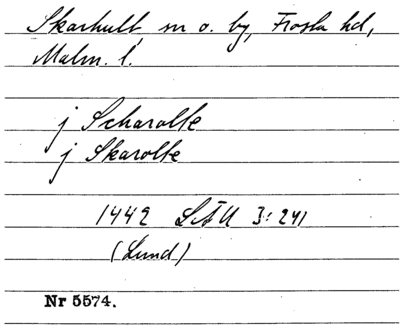 Skarhult, sn o. by, Frosta hd,
Malm. l.
j Scharolte
j Skarolte
1442 LÄU 3: 241
(Lund)
Nr 5574.